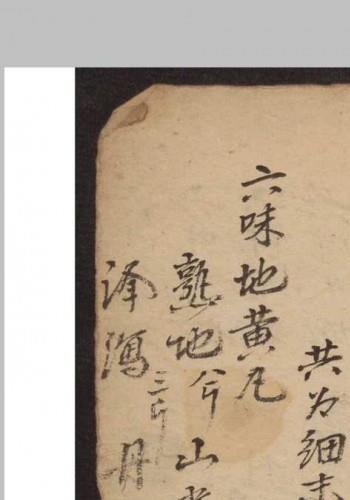 共为细末
六味地黄丸
熟地 山
泽瀉三斤 丹